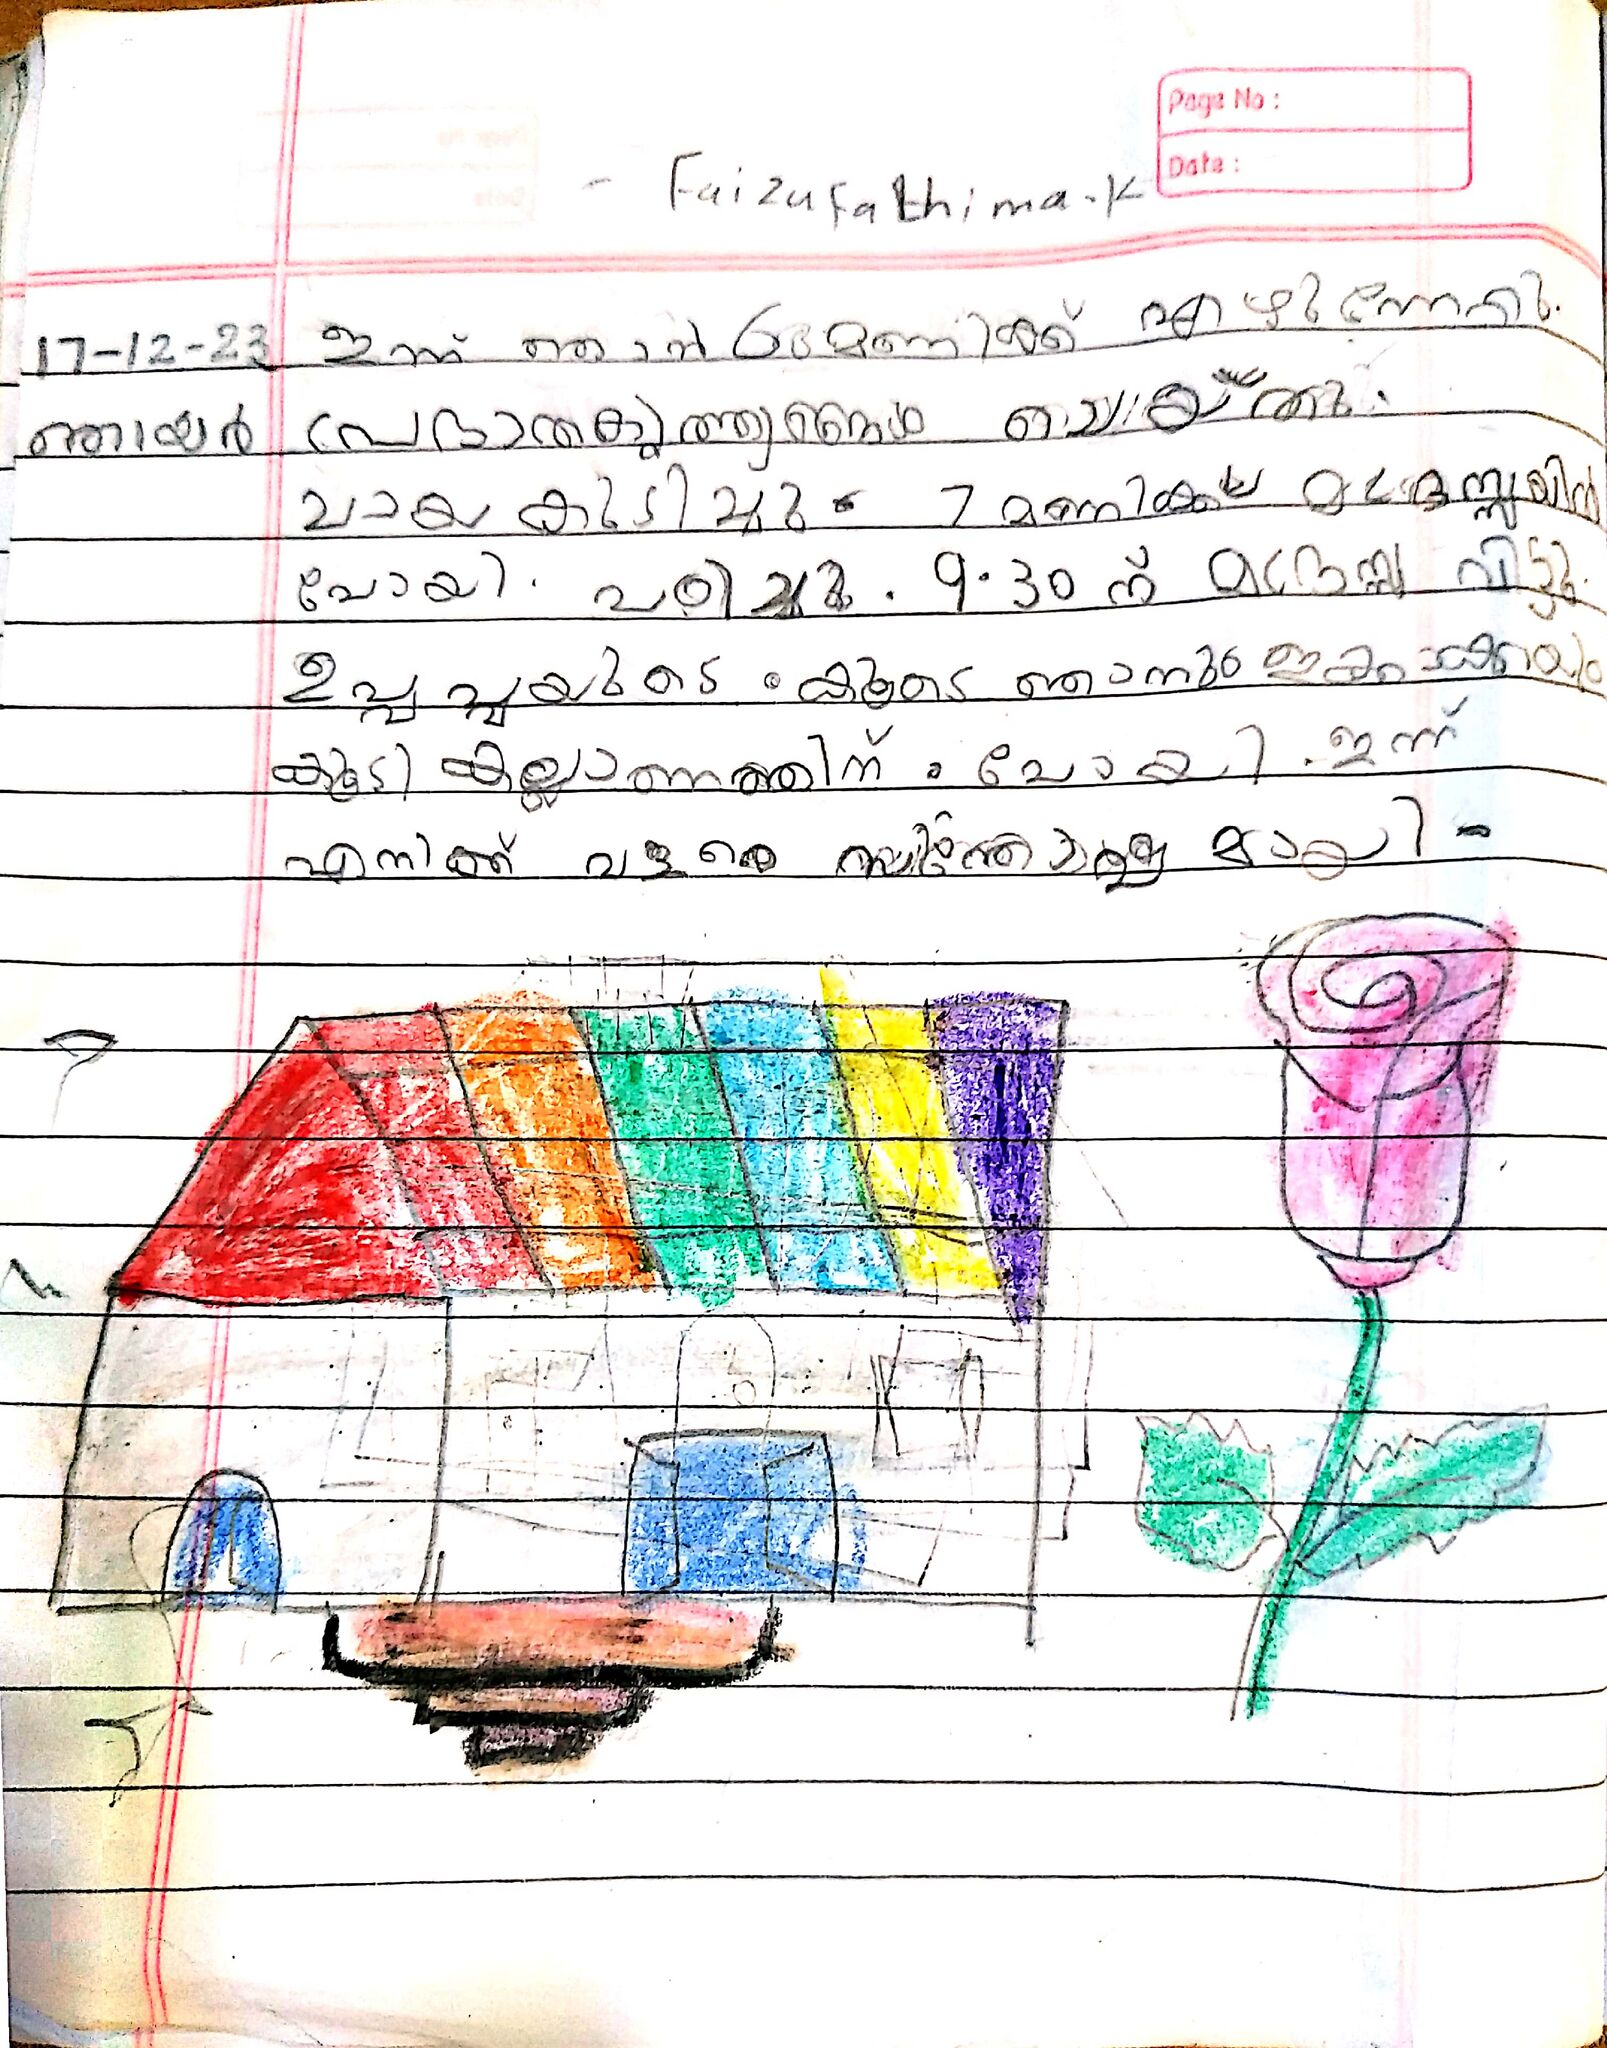 Page No :
Date :
- Faizufathima.K
17-12-23 ഇന്ന് ഞാൻ 6 മണിക്ക് എഴുന്നേറ്റു.
ഞായർ പ്രഭാതകൃത്യങ്ങൾ ചെയ്തു.
ചായ കുടിച്ചു. 7 മണിക്ക് മദ്രസ്സയിൽ
പോയി. പഠിച്ചു. 9.30 ന് മദ്രസ്സ വിട്ടു.
ഉപ്പപ്പയുടെ കൂടെ ഞാനും
കൂടി കല്ല്യാണത്തിന് പോയി. ഇന്ന്
എനിക്ക് വളരെ സന്തോഷമായി -